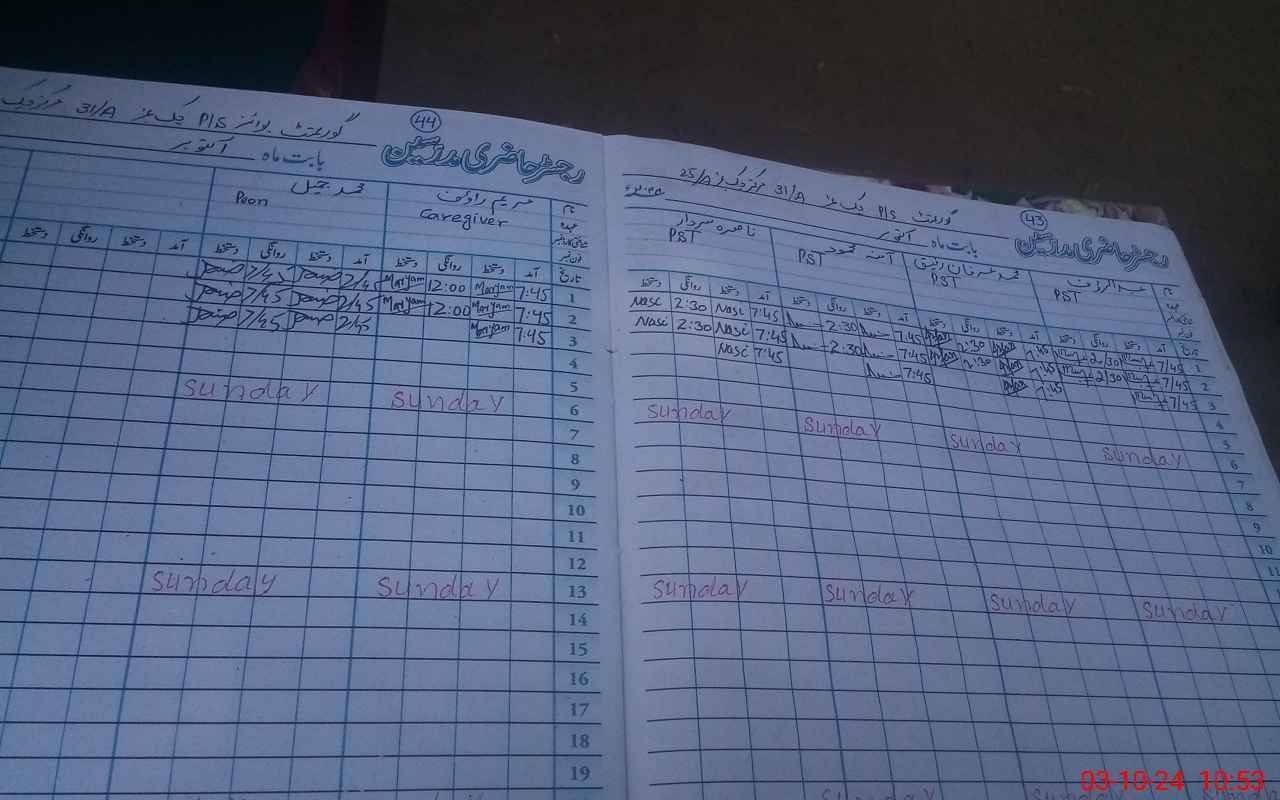 43
رجسٹر حاضری مدرسین
گورنمنٹ P/S چک نمبر 31/A مرکز چک نمبر 25/A
بابت ماہ اکتوبر
نام عبدالرؤف محمد عرفان رفیق آمنہ محمود ناصرہ سردار
عہدہ PST PST PST PST
تاریخ آمد دستخط روانگی دستخط آمد دستخط روانگی دستخط آمد دستخط روانگی دستخط آمد دستخط روانگی دستخط
1 7/45 2/30 7:45 2:30 7:45 2:30 7:45 Nasi 2:30 Nasi
2 7/45 2/30 7:45 2:30 7:45 2:30 7:45 Nasi 2:30 Nasi
3 7/45 7:45 7:45 7:45 Nasi
4
5
6 Sunday Sunday Sunday Sunday
7
8
9
10
11
Sunday Sunday Sunday Sunday
44
رجسٹر حاضری مدرسین
گورنمنٹ بوائز P/S چک نمبر 31/A مرکز چک
بابت ماہ اکتوبر
نام مریم رؤف محمد جمیل
عہدہ Caregiver Peon
تاریخ آمد دستخط روانگی دستخط آمد دستخط روانگی دستخط آمد دستخط روانگی دستخط
1 7:45 Maryam 12:00 Maryam 7/45 7/45
2 7:45 Maryam 12:00 Maryam 7/45 7/45
3 7:45 Maryam 7/45 7/45
4
5
6 Sunday Sunday
7
8
9
10
11
12
13 Sunday Sunday
14
15
16
17
18
19
03-10-24 10:53